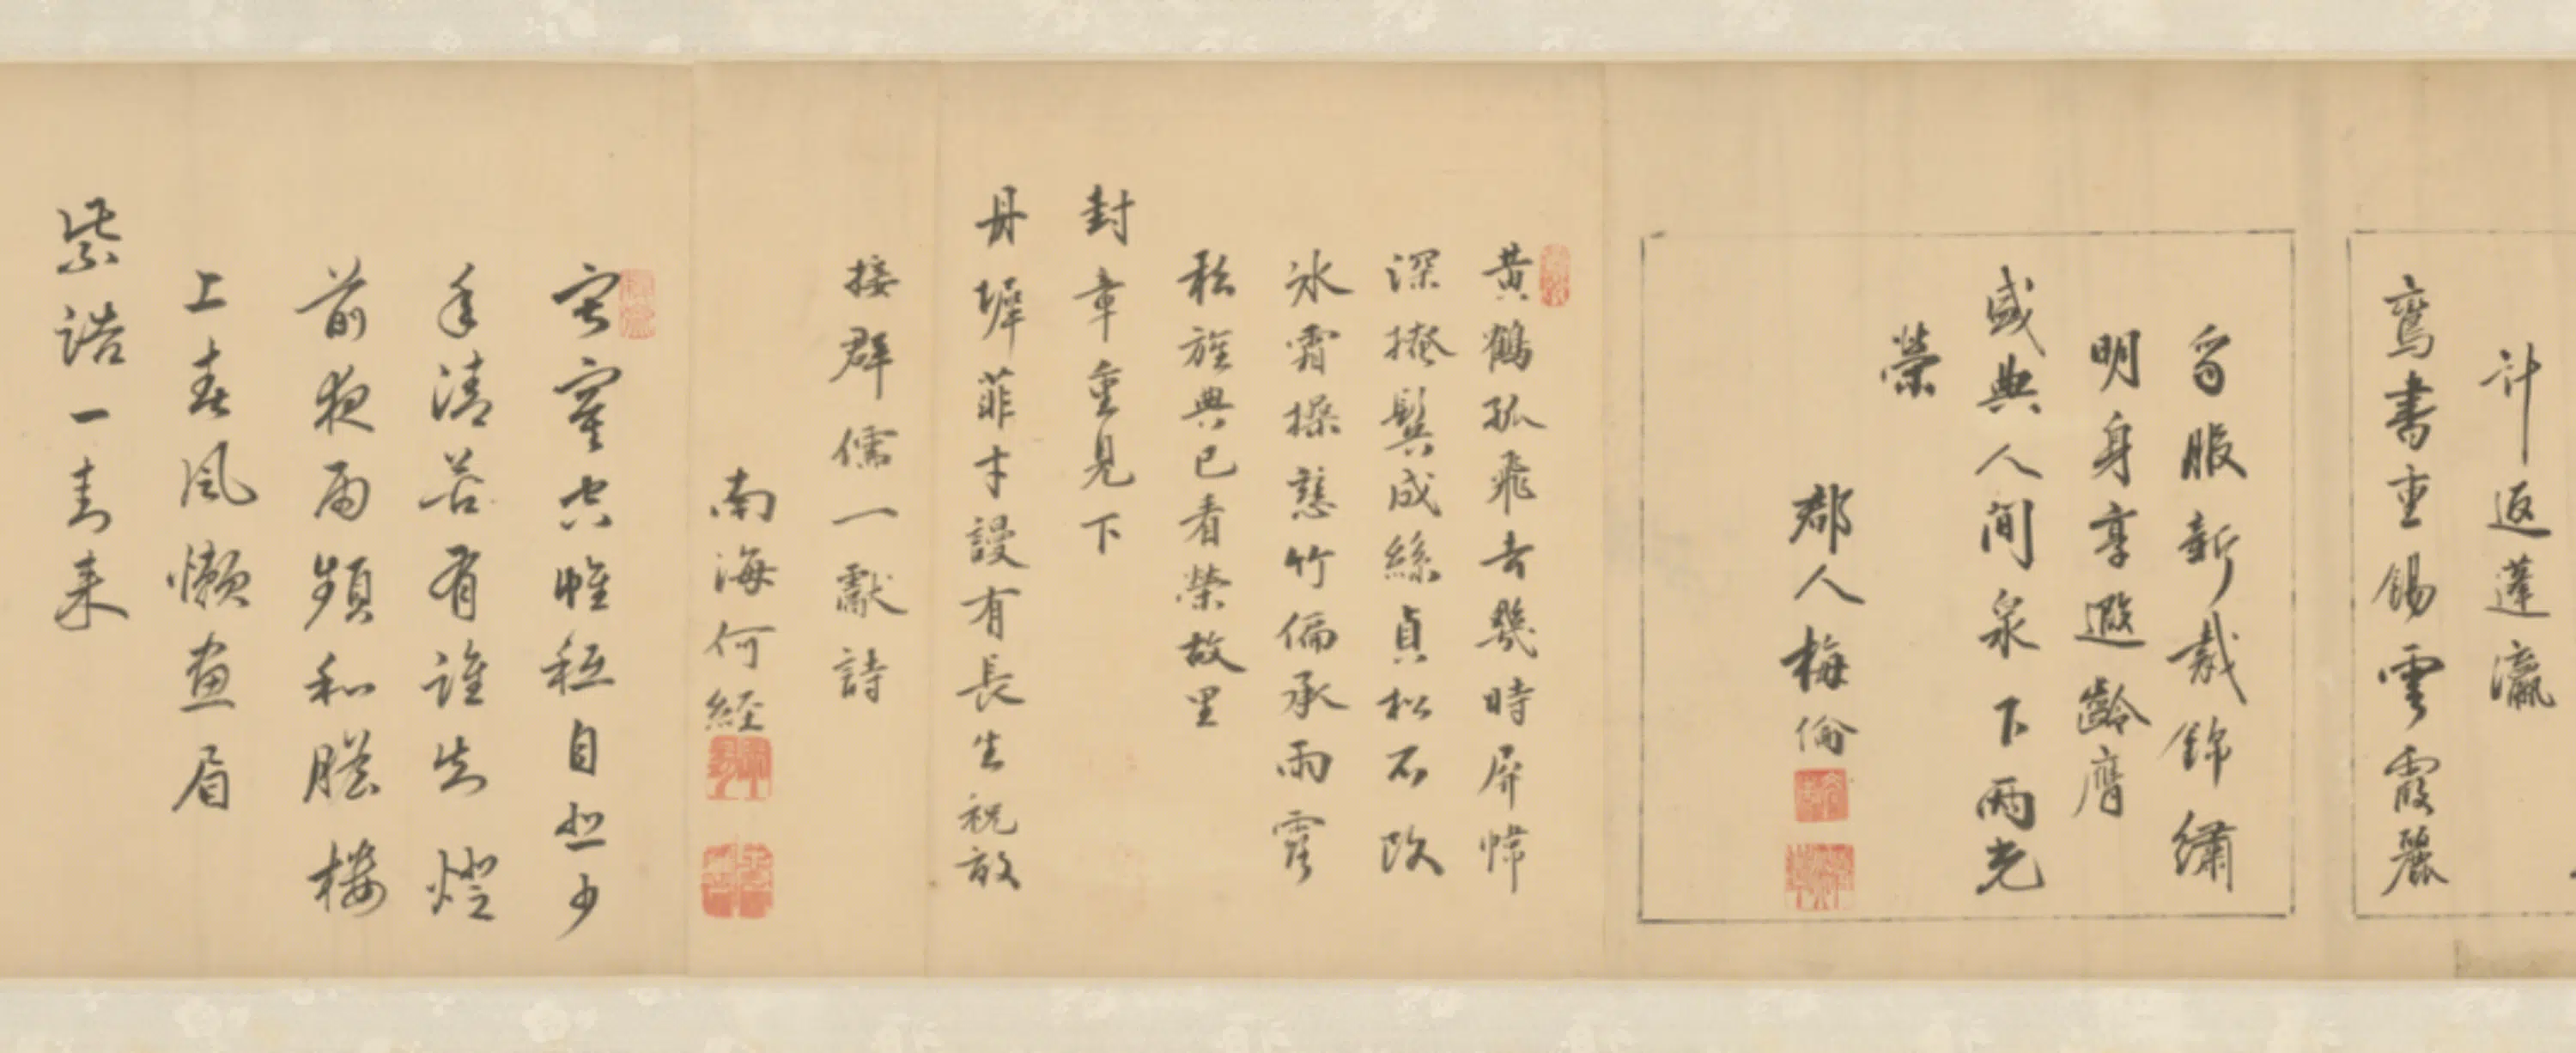 計返蓬瀛
鸞書重錫雲霞麗
命服新裁錦繡
明身享遐齡膺
盛典人間泉下兩光
榮
郡人梅倫
黃鶴孤飛去幾時屏幃
深掩鬢成絲貞松不改
冰霜操慈竹偏承雨露
私旌典已看榮故里
封章重見下
丹墀菲才謾有長生祝敢
接群儒一獻詩
南海何経
空帷秪自悲少
年清苦有誰知燈
前夜雨頻和膽樓
上春風懶畫眉
紫誥一封來